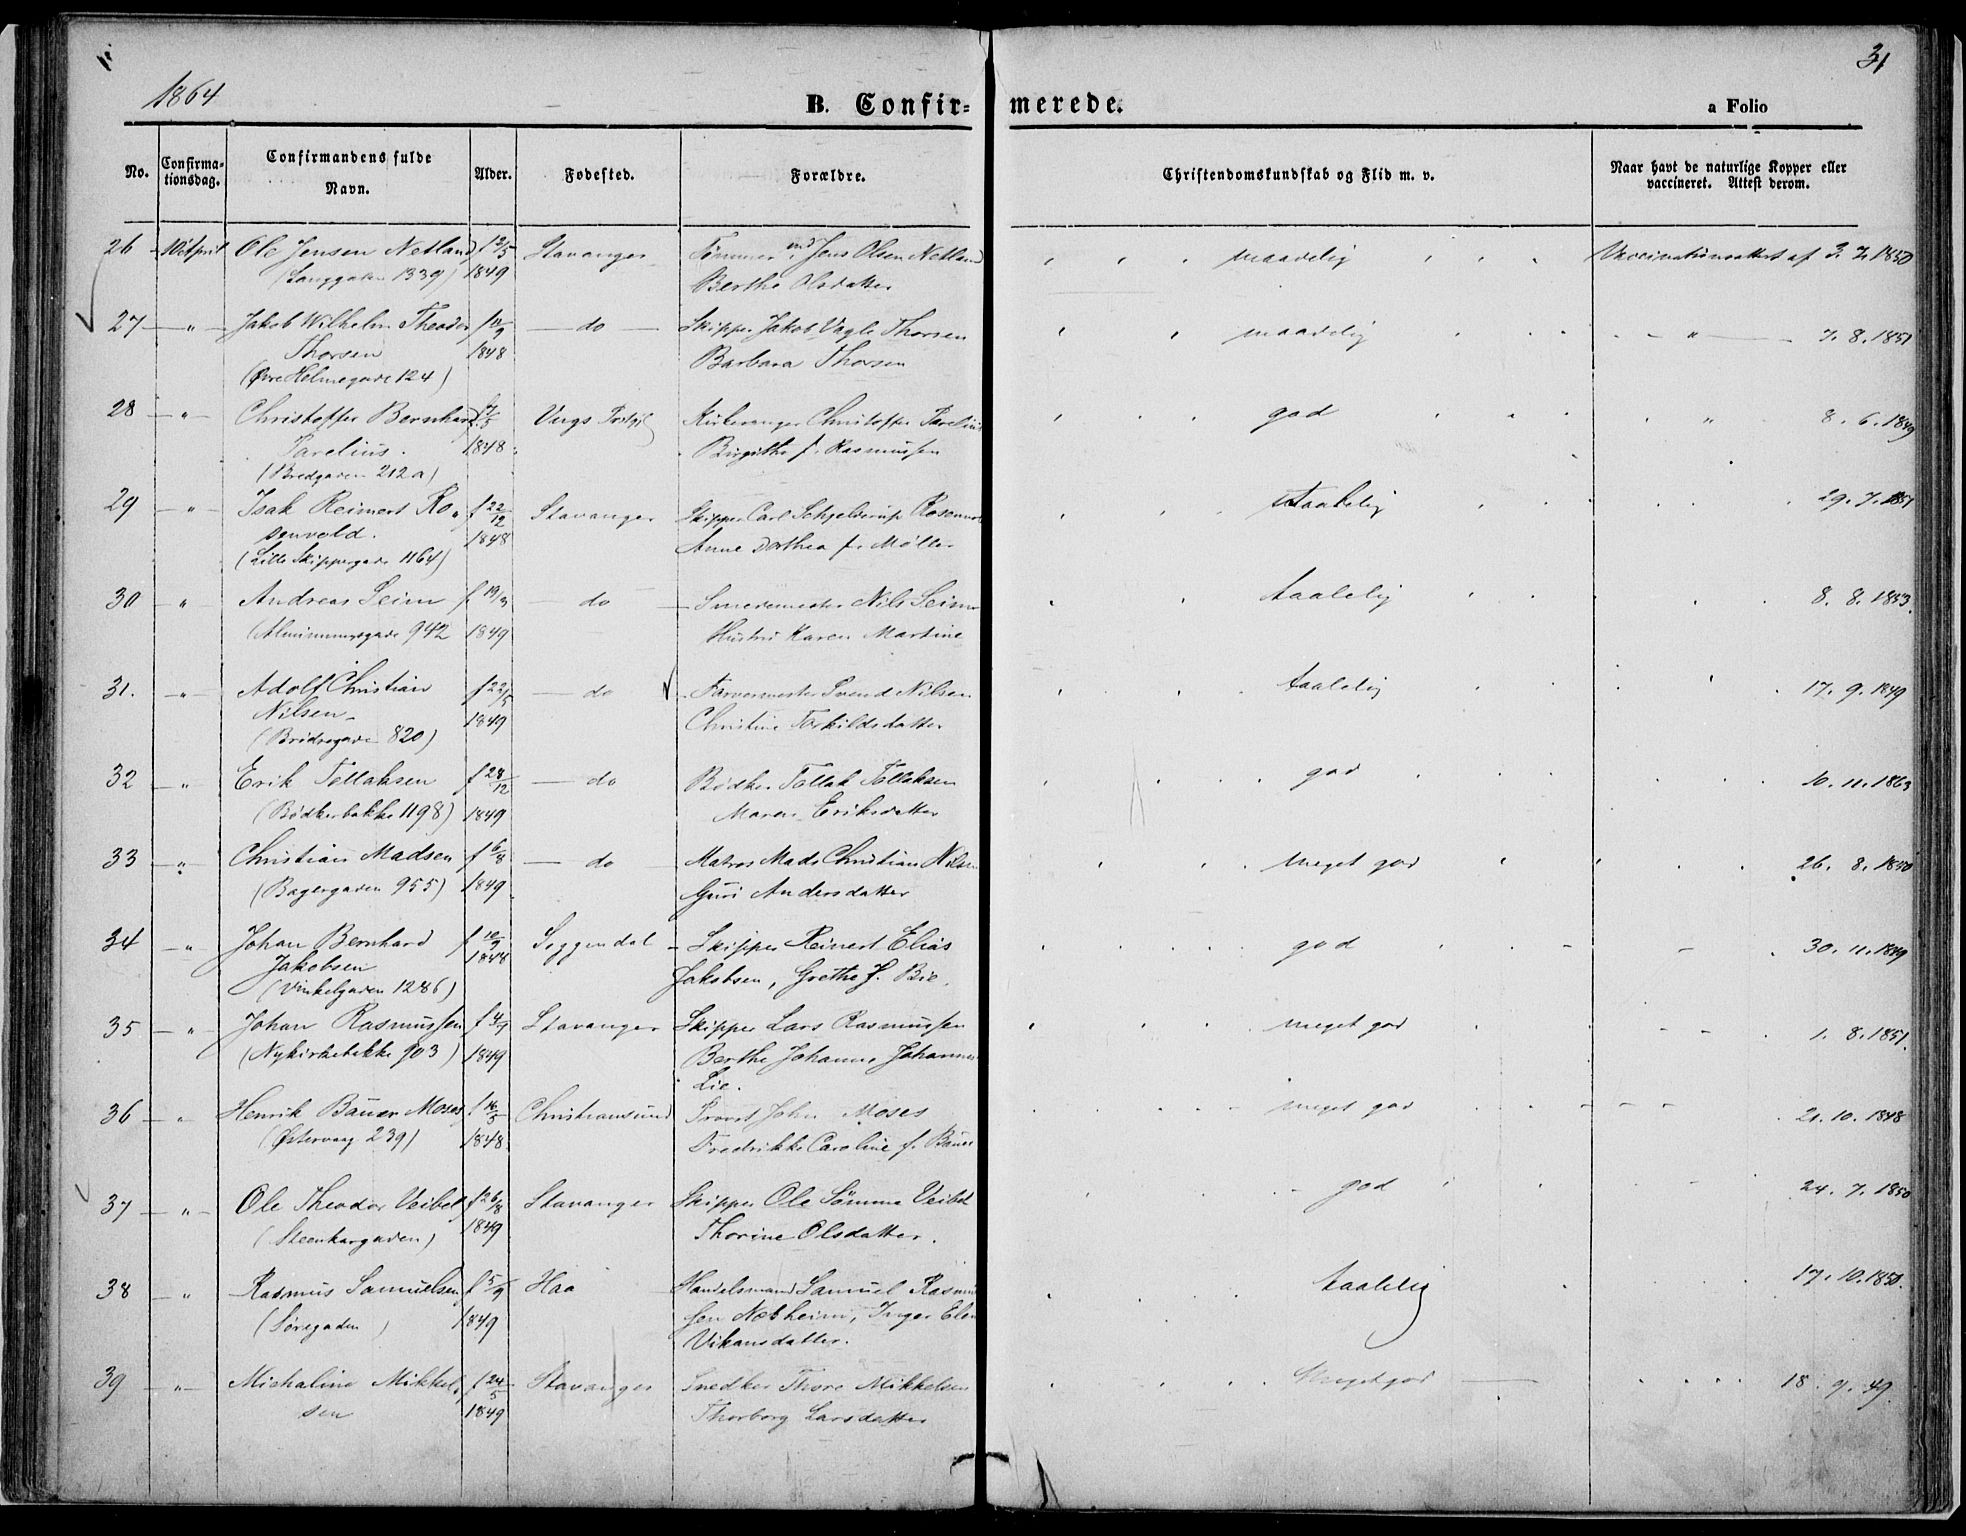 1864
31
B. Confir= merede.
a Folio
No.
Confirma-
tionsdag.
Confirmandens fulde
Navn.
Alder.
Fødested.
Forældre.
Christendomskundskab og Flid m. v.
Naar havt de naturlige Kopper eller
vaccineret. Attest derom.
26 10 April Ole Jensen Netland f 12/5 Stavanger Tømmermd Jens Olsen Netland maadelig Vaccinationsattest af 3. 7. 1850
(Langgaden 1339) 1849 Berthe Olsdatter
27 — " — Jakob Wilhelm Theodor f 11/9 — do — Skipper Jakob Vagle Thorsen maadelig — " — 7. 8. 1851
Thorsen 1848 Barbara Thorsen
(Øvre Holmegade 124)
28 — " — Christoffer Bernhard Kirkesanger Christoffer Parelius god " 8. 6. 1849
Parelius. 1848 Birgitha f. Rasmussen
(Bredgaden 212a)
29 — " — Isak Reinert Ro„ f 22/12 Stavanger Skipper Carl Schjelderup taalelig 29. 7. 1851
senvold. 1848 Anne Dorthea f. Møller
(Lille Skippergade 1164)
30 " Andreas Seim f 19/3 — do — Smedemester Nils Seim taalelig 8. 8. 1853.
942 1849 Hustru Karen Martine
31. — " — Adolf Christian f 22/5 — do Farvermester Svend Nilsen taalelig 17. 9. 1849
Nilsen 1849 Christine Torkildsdatter
820)
32 — " Erik Tollaksen f 28/12 — do Bødker Tollak Tollaksen god 10. 11. 1863
(Bødkerbakke 1198) 1849 Maren Eriksdatter
33 — " Christian Madsen f 6/8 — do Matros Mads Christian Nilsen meget god 26. 8. 1850
(Bagergaden 955) 1849 Guri Andersdatter
34 — " Johan Bernhard f 10/9 Soggendal — Skipper Reinert Elias god 30. 11. 1849
Jakobsen 1848 Jakobsen, Grethe f. Bie.
(Vinkelgaden 1286)
35 — " Johan Rasmussen f 4/9 Stavanger Skipper Lars Rasmussen meget god 1. 8. 1851.
(Nykirkebakke 903) 1849 Berthe Johanne
Lie.
36 — " Henrik Bauer Moses f 16/5 Christiansund Provst John Moses meget god 21. 10. 1848
(Østervaag 239) 1848. Fredrikke Caroline f. Bauer
37 — " — Ole Theodor Veibel f 26/8 Stavanger Skipper Ole Sømme Veibel god 24. 7. 1850
(Steenkargaden) 1849 Thorine Olsdatter.
38 — " Rasmus Samuelsen f 5/9 Haa Handelsmand Samuel Rasmus taalelig 17. 10. 1850.
(Søregaden ) 1849 sen Netheim, Inger Elen
39 — " — Michaline Mikkel„ f 24/5 Stavanger Snedker Thore Mikkelsen Meget god — 18. 9. 49.
sen 1849 Thorborg Larsdatter